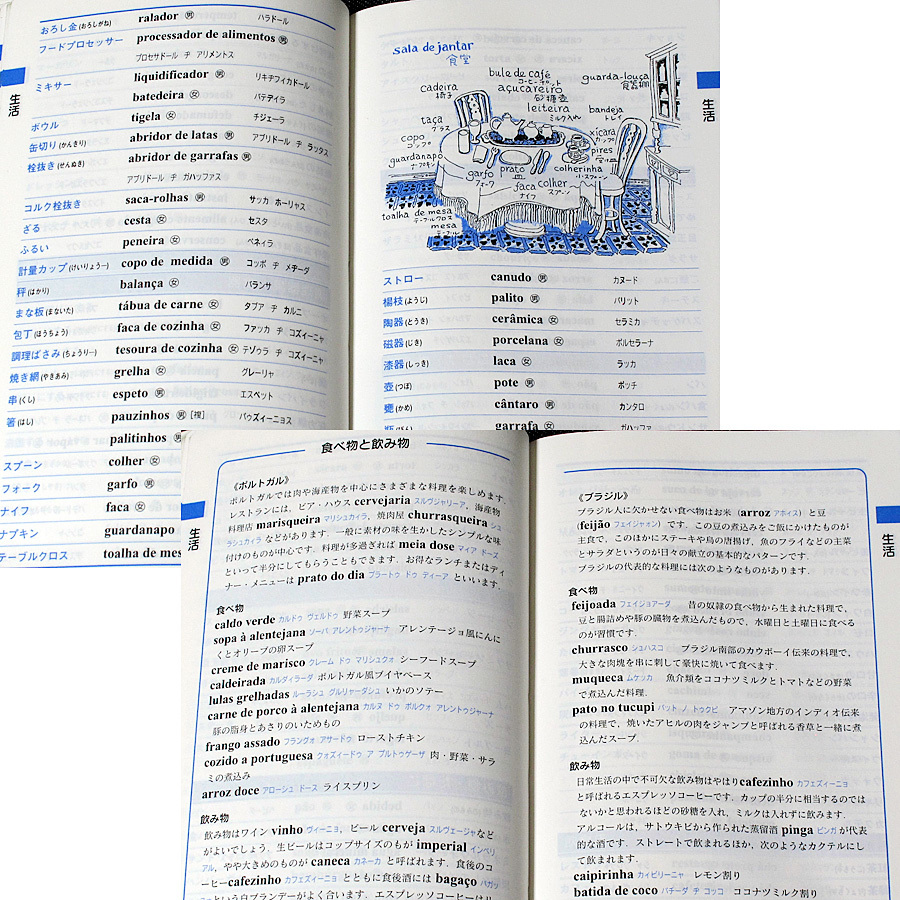 おろし金(おろしがね) ralador 男 ハラドール
フードプロセッサー processador de alimentos 男
プロセサドール ヂ アリメントス
ミキサー liquidificador 男 リキヂフィカドール
batedeira 女 バテデイラ
ボウル tigela 女 チジェーラ
缶切り(かんきり) abridor de latas 男 アブリドール ヂ ラッタス
栓抜き(せんぬき) abridor de garrafas 男
アブリドール ヂ ガハッファス
コルク栓抜き saca-rolhas 男 サッカ ホーリャス
ざる cesta 女 セスタ
ふるい peneira 女 ペネイラ
計量カップ(けいりょう―) copo de medida 男 コッポ ヂ メヂーダ
秤(はかり) balança 女 バランサ
まな板(まないた) tábua de carne 女 タブア ヂ カルニ
包丁(ほうちょう) faca de cozinha 女 ファッカ ヂ コズィーニャ
調理ばさみ(ちょうり―) tesoura de cozinha 女 テゾウラ ヂ コズィーニャ
焼き網(やきあみ) grelha 女 グレーリャ
串(くし) espeto 男 エスペット
箸(はし) pauzinhos 男[複] パウズィーニョス
palitinhos 男
スプーン colher 女
フォーク garfo 男
ナイフ faca 女
ナプキン guardanapo
テーブルクロス toalha de mes
生活
sala de jantar
食堂
bule de café
コーヒーポット
açucareiro
砂糖壺
leiteira
ミルク入れ
guarda-louça
食器棚
cadeira
椅子
bandeja
トレイ
taça
グラス
xícara
カップ
copo
コップ
pires
受け皿
guardanapo
ナプキン
garfo
フォーク
prato
皿
colherinha
小スプーン
faca
ナイフ
colher
スプーン
toalha de mesa
テーブルクロス
mesa
テーブル
生活
ストロー canudo 男 カヌード
楊枝(ようじ) palito 男 パリット
陶器(とうき) cerâmica 女 セラミカ
磁器(じき) porcelana 女 ポルセラーナ
漆器(しっき) laca 女 ラッカ
壺(つぼ) pote 男 ポッチ
甕(かめ) cântaro 男 カンタロ
瓶(びん) garrafa 女 ガハッファ
食べ物と飲み物
生活
《ポルトガル》
ポルトガルでは肉や海産物を中心にさまざまな料理を楽しめます.
レストランには, ビア・ハウス cervejaria スルヴジャリーア, 海産物
料理店 marisqueira マリシュカイラ, 焼肉屋 churrasqueira シュ
ラシュカイラ などがあります. 一般に素材の味を生かしたシンプルな味
付けのものが中心です. 料理が多過ぎれば meia dose マイア ドーズ
といって半分にしてもらうこともできます. お得なランチまたはディ
ナー・メニューは prato do dia プラートゥ ドゥ ディーア といいます.
食べ物
caldo verde カルドゥ ヴェルドゥ 野菜スープ
sopa à alentejana ソーパ アレントゥジャーナ アレンテージョ風にんに
くとオリーブの卵スープ
creme de marisco クレーム ドゥ マリシュクォ シーフードスープ
caldeirada カルダイラーダ ポルトガル風ブイヤベース
lulas grelhadas ルーラシュ グルリャーダシュ いかのソテー
carne de porco à alentejana カルヌ ドゥ ポルクォ アレントゥジャーナ
豚の脂身とあさりのいためもの
frango assado フラングォ アサードゥ ローストチキン
cozido a portuguesa クォズィードゥ ア プルトゥゲーザ 肉・野菜・サラ
ミの煮込み
arroz doce アローシュ ドース ライスプリン
飲み物
飲み物はワイン vinho ヴィーニョ, ビール cerveja スルヴェージャなど
がよいでしょう. 生ビールはコップサイズのもが imperial インペリ
アル, やや大きめのものが caneca カネーカ と呼ばれます. 食後のコ
ーヒーcafezinho カフェズィーニョ とともに食後酒には bagaço バガッ
という白ブランデーがよく合います. エスプレッソコーヒーは
《ブラジル》
ブラジル人に欠かせない食べ物はお米 (arroz アホィス) と豆
(feijão フェイジャォン) です. この豆の煮込みをご飯にかけたものが
主食で, このほかにステーキや鳥の唐揚げ, 魚のフライなどの主菜
とサラダというのが日々の献立の基本的なパターンです.
ブラジルの代表的な料理には次のようなものがあります.
食べ物
feijoada フェイジョアーダ 昔の奴隷の食べ物から生まれた料理で,
豆と腸詰めや豚の臓物を煮込んだもので, 水曜日と土曜日に食べる
のが習慣です.
churrasco シュハスコ ブラジル南部のカウボーイ伝来の料理で,
大きな肉塊を串に刺して豪快に焼いて食べます.
muqueca ムケッカ 魚介類をココナツミルクとトマトなどの野菜
で煮込んだ料理.
pato no tucupi パット ノ トゥクピ アマゾン地方のインディオ伝来
の料理で, 焼いたアヒルの肉をジャンブと呼ばれる香草と一緒に煮
込んだスープ.
飲み物
日常生活の中で不可欠な飲み物はやはりcafezinho カフェズィーニョ
と呼ばれるエスプレッソコーヒーです. カップの半分に相当するのでは
ないかと思われるほどの砂糖を入れ, ミルクは入れずに飲みます.
アルコールは, サトウキビから作られた蒸留酒 pinga ピンガ が代表
的な酒です. ストレートで飲まれるほか, 次のようなカクテルにし
て飲まれます.
caipirinha カイピリーニャ レモン割り
batida de coco バチーダ ヂ コッコ ココナツミルク割り
生活